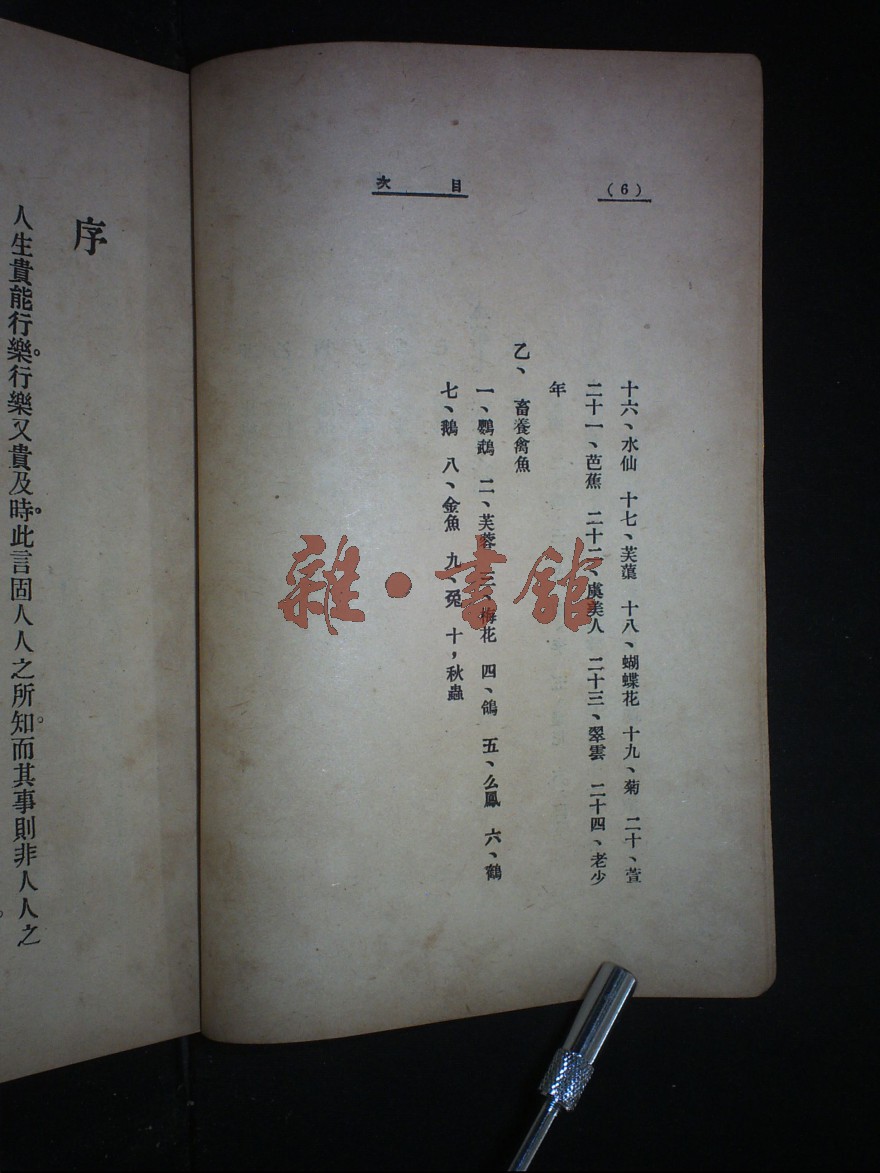 (6)
目次
十六、水仙 十七、芙蕖 十八、蝴蝶花 十九、菊 二十、萱
二十一、芭蕉 二十二、虞美人 二十三、翠雲 二十四、老少
年
乙、畜養禽魚
一、鸚鵡 二、芙蓉 三、梅花 四、鴿 五、么鳳 六、鶴
七、鵝 八、金魚 九、兔 十，秋蟲
序
人生貴能行樂。行樂又貴及時。此言固人人之所知。而其事則非人人之
雜·書館